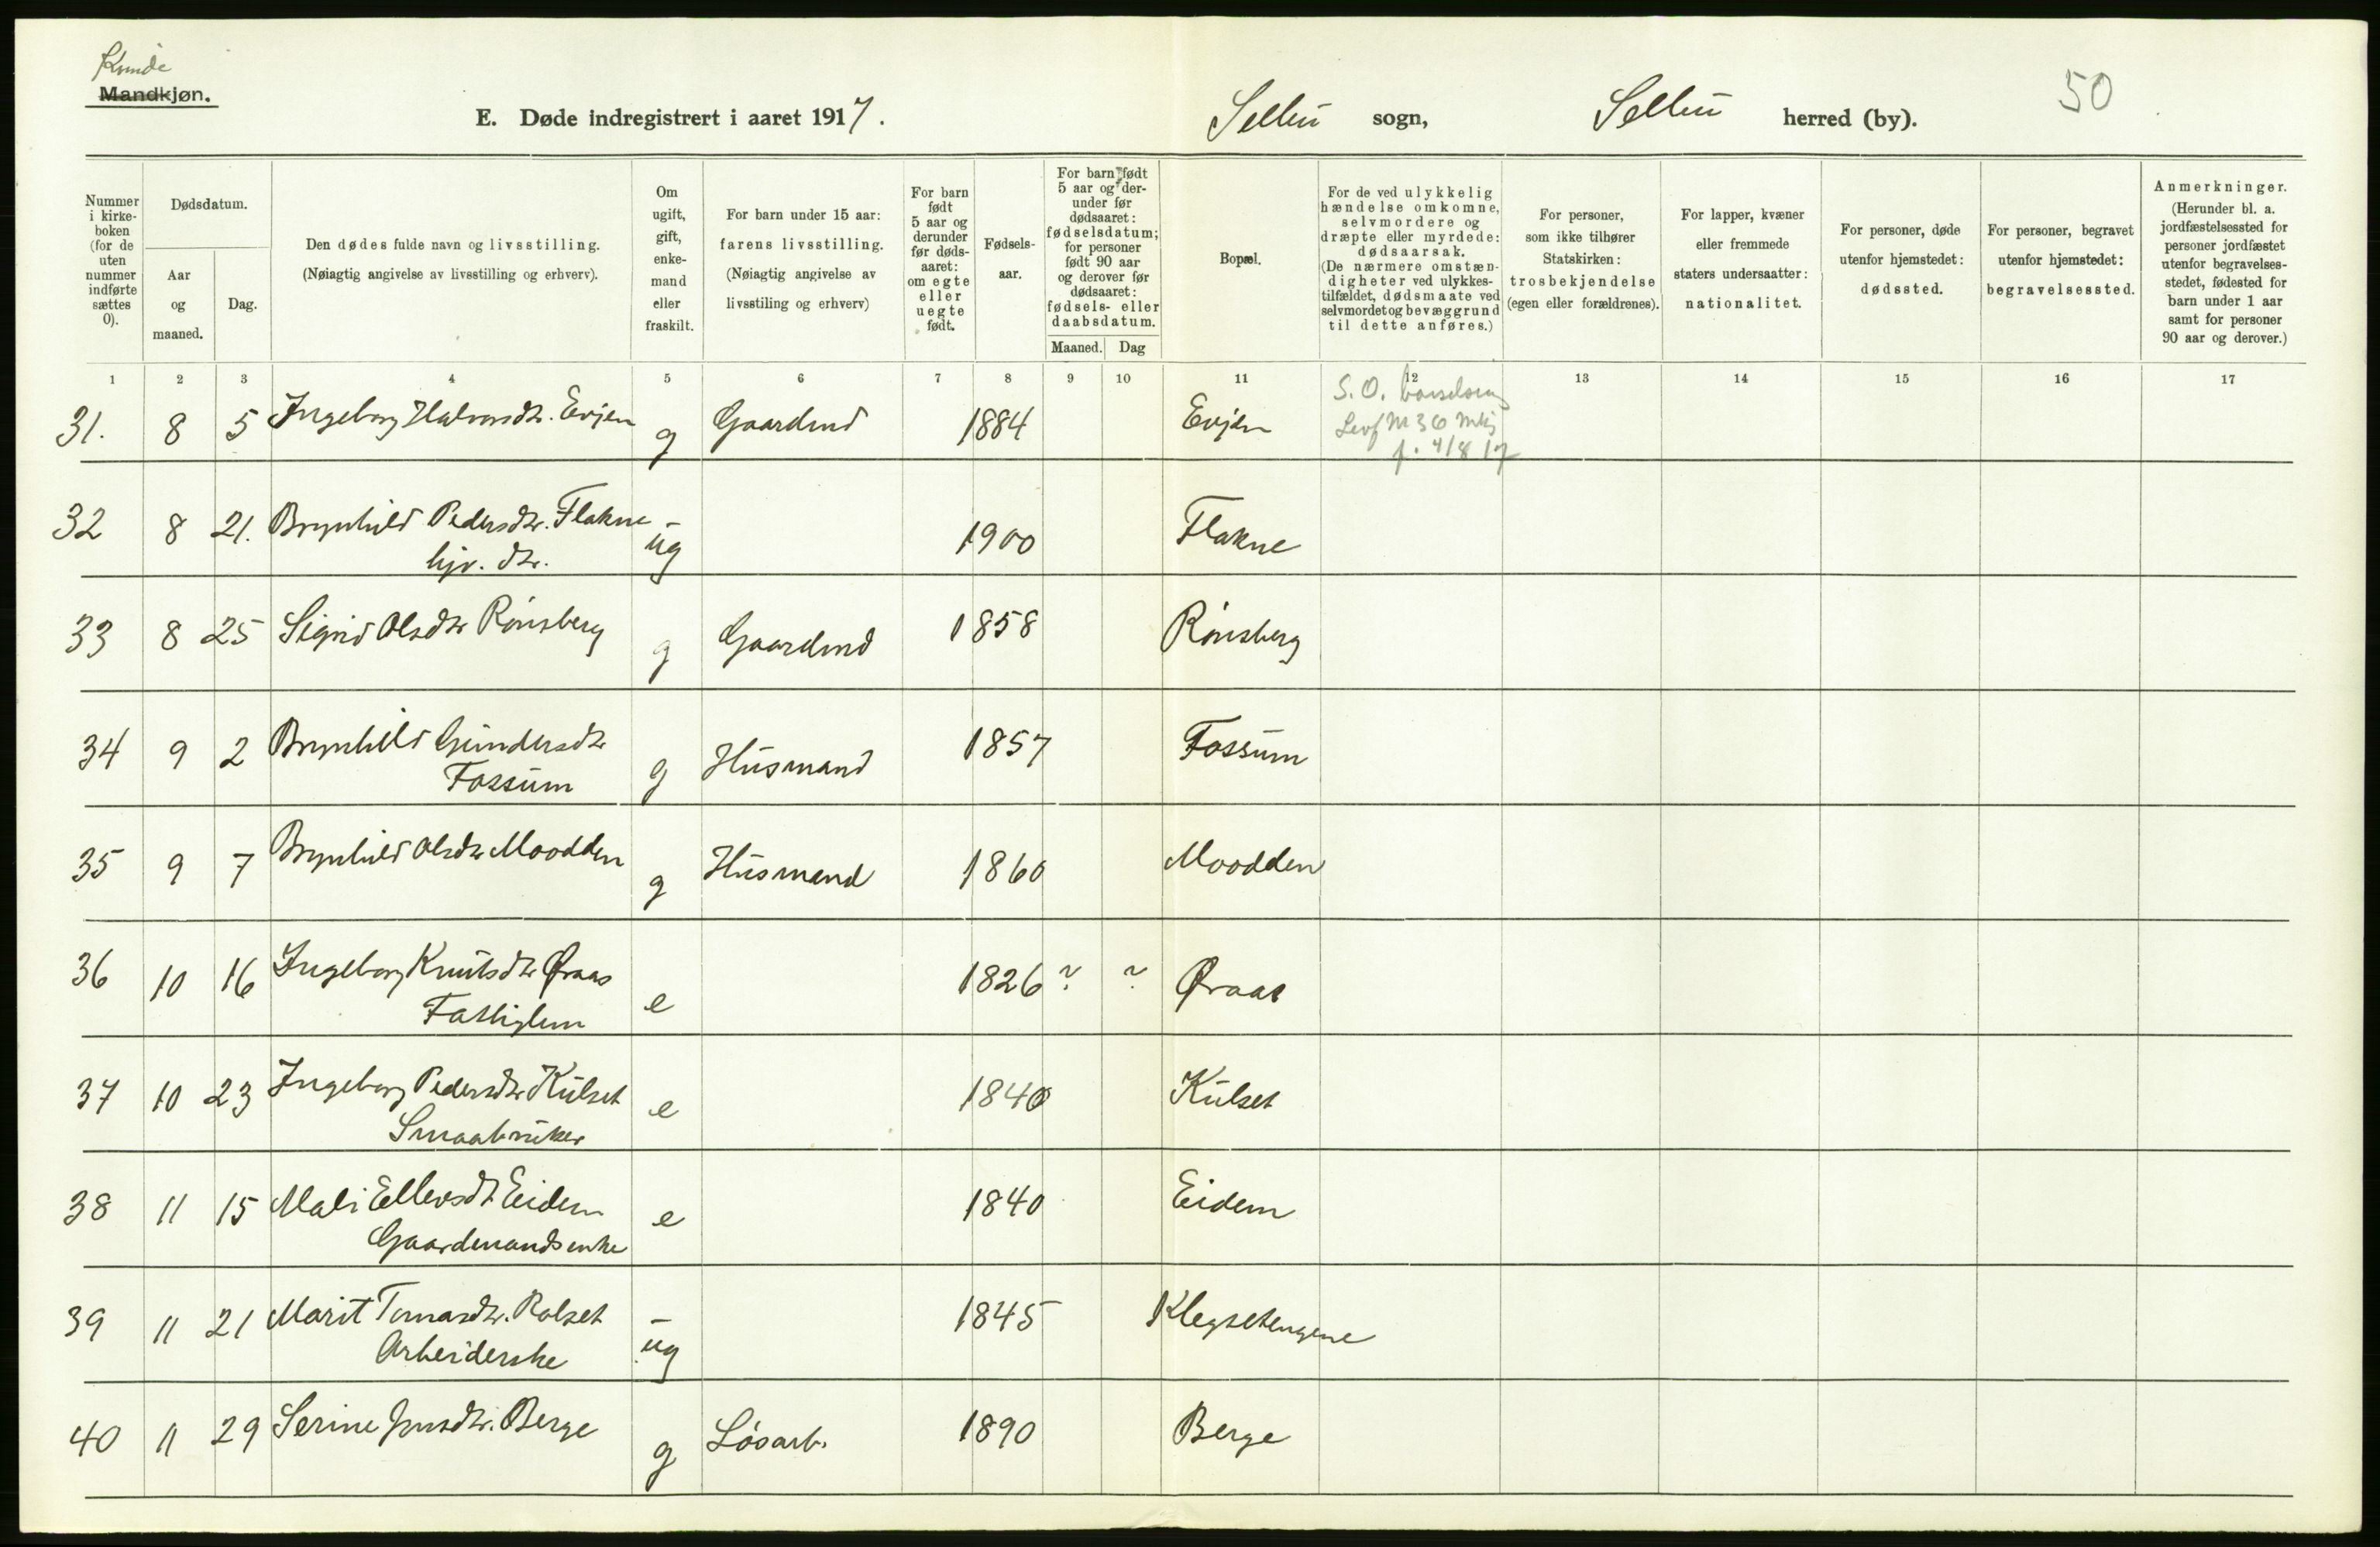 Kvinde
Mandkjøn.
E. Døde indregistrert i aaret 1917. Selbu sogn, Selbu herred (by). 50
Nummer i kirke-boken (for de uten nummer indførte sættes 0).
Dødsdatum.
Aar og maaned.
Dag.
Den dødes fulde navn og livsstilling.
(Nøiagtig angivelse av livsstilling og erhverv).
Om ugift, gift, enke-mand eller fraskilt.
For barn under 15 aar: farens livsstilling.
(Nøiagtig angivelse av livsstiling og erhverv)
For barn født 5 aar og derunder før døds-aaret: om egte eller uegte født.
Fødsels-aar.
For barn født 5 aar og der-under før dødsaaret: fødselsdatum; for personer født 90 aar og derover før dødsaaret: fødsels- eller daabsdatum.
Maaned. Dag
Bopæl.
For de ved ulykkelig hændelse omkomne, selvmordere og dræpte eller myrdede: dødsaarsak.
(De nærmere omstæn-digheter ved ulykkes-tilfældet, dødsmaate ved selvmordet og bevæggrund til dette anføres.)
For personer, som ikke tilhører Statskirken: trosbekjendelse (egen eller forældrenes).
For lapper, kvæner eller fremmede staters undersaatter: nationalitet.
For personer, døde utenfor hjemstedet: dødssted.
For personer, begravet utenfor hjemstedet: begravelsessted.
Anmerkninger.
(Herunder bl. a. jordfæstelsessted for personer jordfæstet utenfor begravelses-stedet, fødested for barn under 1 aar samt for personer 90 aar og derover.)
1 2 3 4 5 6 7 8 9 10 11 12 13 14 15 16 17
31. 8 5 Ingeborg Halvorsdtr. Evjen g Gaardmd 1884 Evjen S. O. barselseng
f. 4/8 17
32 8 21. Brynhild Pedersdtr. Flakne ug 1900 Flakne
hjv. dtr.
33 8 25 Sigrid Olsdtr Rønsberg g Gaardmd 1858 Rønsberg
34 9 2 Brynhild Gundersdtr g Husmand 1857 Fossum
Fossum
35 9 7 Brynhild Olsdtr Moodden g Husmand 1860 Moodden
36 10 16 Ingeborg Knutsdtr Øraas e 1826 ? ? Øraas
Fattiglem
37 10 23 Ingeborg Pedersdtr Kulset e 1840 Kulset
Smaabruker
38 11 15 Mali Ellevsdt Eidem e 1840 Eidem
Gaardmandsenke
39 11 21 Marit Tomasdtr. Rolset ug 1845 Klegsetengene
Arbeiderske
40 11 29 Serine Jonsdtr. Berge g Løsarb. 1890 Berge